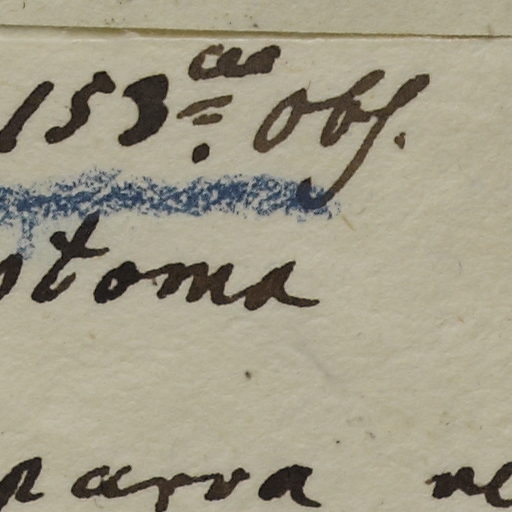 153cea Obs.
stoma
parva